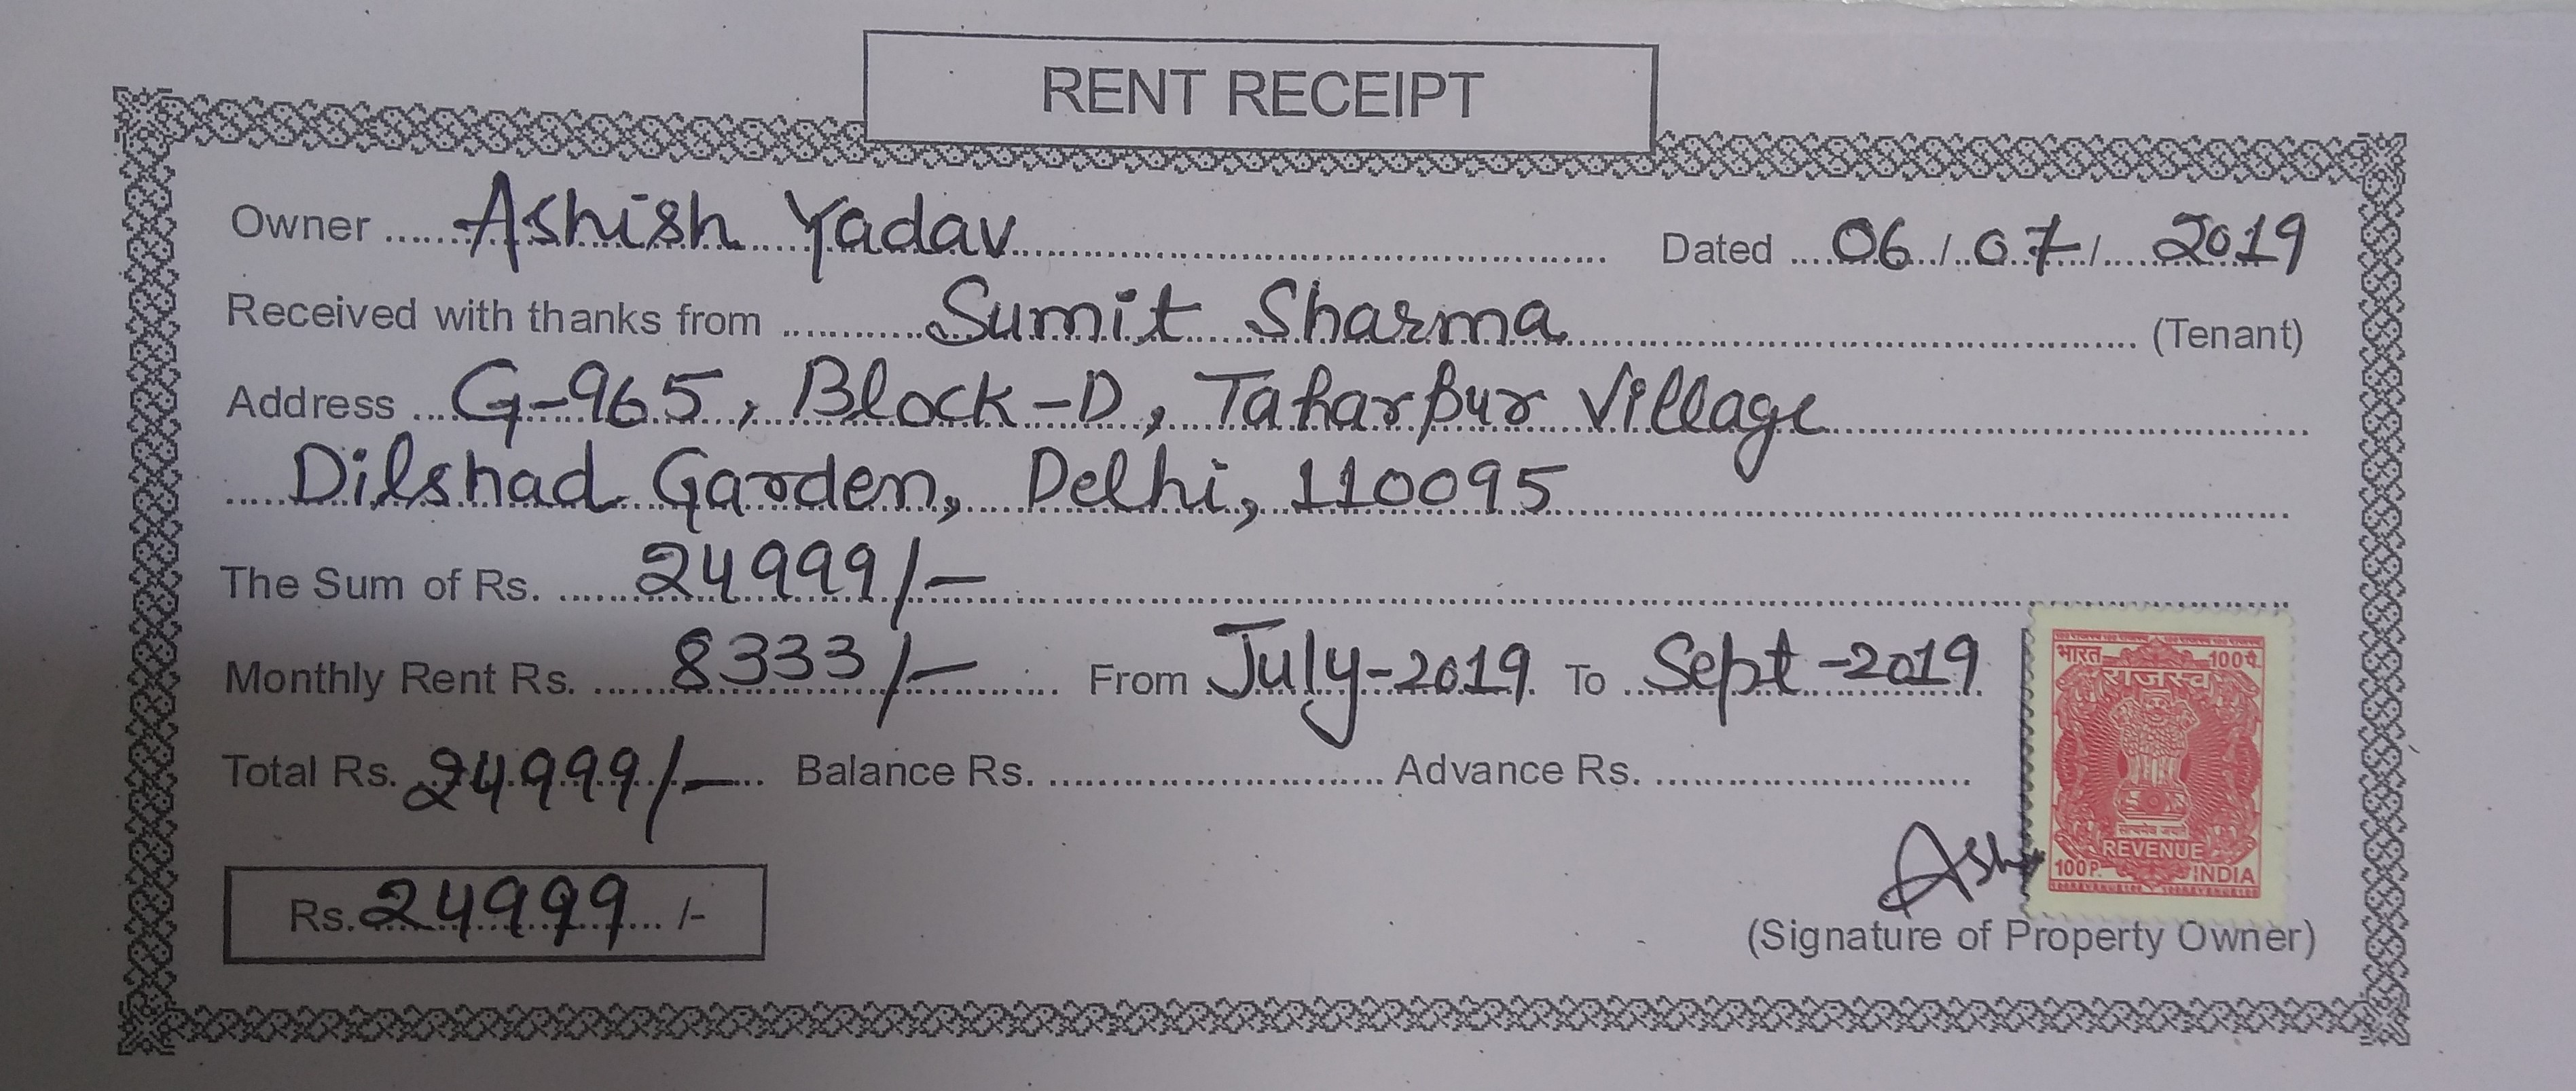 RENT RECEIPT
Owner Ashish Yadav Dated 06/07/2019
Received with thanks from Sumit Sharma (Tenant)
Address G-965, Block-D, Taharpur Village
Dilshad Garden, Delhi, 110095
The Sum of Rs. 24999/-
Monthly Rent Rs. 8333/- From July-2019 To Sept-2019
Total Rs. 24999/- Balance Rs. Advance Rs.
भारत 100पै.
राजस्व
सत्यमेव जयते
REVENUE
100P. INDIA
Ash
Rs. 24999 /-
(Signature of Property Owner)